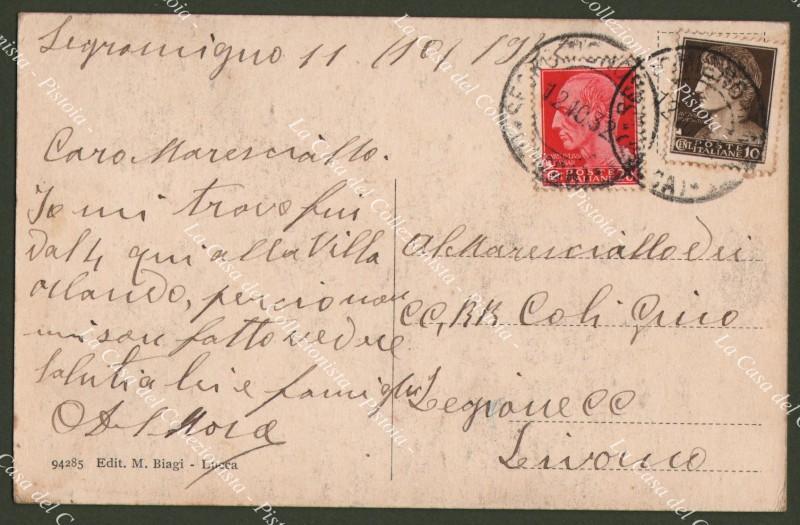 Segromigno 11 / 10 / 19
Caro Maresciallo.
Io mi trovo fin
dal 4 qui alla Villa
Orlando, percio non
mi son fatto vedere
Saluti a lei e famiglia
94285 Edit. M. Biagi - Lucca
Al Maresciallo dei
CC, RR Coli Gino
Legione CC
Livorno
12.10.32
POSTE
ITALIANE 20
POSTE
CENT. ITALIANE 10
La Casa del Collezionista - Pistoia -